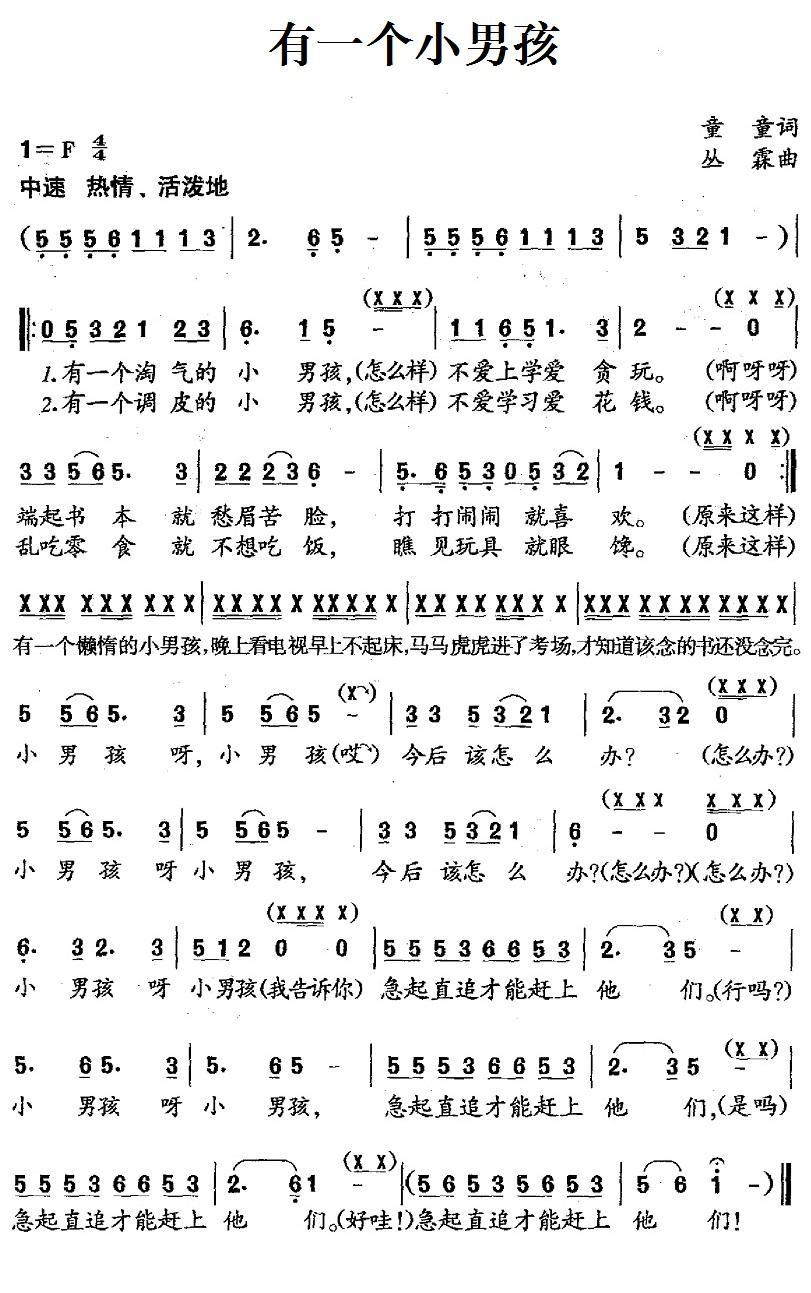 有一个小男孩
童 童词
1=F 4/4
丛 霖曲
中速 热情、活泼地
(5 5 5 6 1 1 1 3 | 2. 6 5 - | 5 5 5 6 1 1 1 3 | 5 3 2 1 -)|
(X X X) (X X X)
‖: 0 5 3 2 1 2 3 | 6. 1 5 - | 1 1 6 5 1. 3 | 2 - - 0
1.有一个淘气的小男孩,(怎么样)不爱上学爱贪玩。(啊呀呀)
2.有一个调皮的小男孩,(怎么样)不爱学习爱花钱。(啊呀呀)
(X X X X)
3 3 5 6 5. 3 | 2 2 2 3 6 - | 5. 6 5 3 0 5 3 2 | 1 - - 0 :‖
端起书本就愁眉苦脸,打打闹闹就喜欢。(原来这样)
乱吃零食就不想吃饭,瞧见玩具就眼馋。(原来这样)
X X X X X X X X X | X X X X X X X X X | X X X X X X X X | X X X X X X X X X X X
有一个懒惰的小男孩,晚上看电视早上不起床,马马虎虎进了考场,才知道该念的书还没念完。
(X) (X X X)
5 5 6 5. 3 | 5 5 6 5 - | 3 3 5 3 2 1 | 2. 3 2 0
小男孩呀,小男孩(哎)今后该怎么办?(怎么办?)
(X X X X X X)
5 5 6 5. 3 | 5 5 6 5 - | 3 3 5 3 2 1 | 6 - - 0
小男孩呀小男孩,今后该怎么办?(怎么办?)(怎么办?)
(X X X X) (X X)
6. 3 2. 3 | 5 1 2 0 0 | 5 5 5 3 6 6 5 3 | 2. 3 5 -
小男孩呀小男孩(我告诉你)急起直追才能赶上他们。(行吗?)
(X X)
5. 6 5. 3 | 5. 6 5 - | 5 5 5 3 6 6 5 3 | 2. 3 5 -
小男孩呀小男孩,急起直追才能赶上他们,(是吗)
(X X)
5 5 5 3 6 6 5 3 | 2. 6 1 - |(5 6 5 3 5 6 5 3 | 5 6 i -)‖
急起直追才能赶上他们。(好哇!)急起直追才能赶上他们!